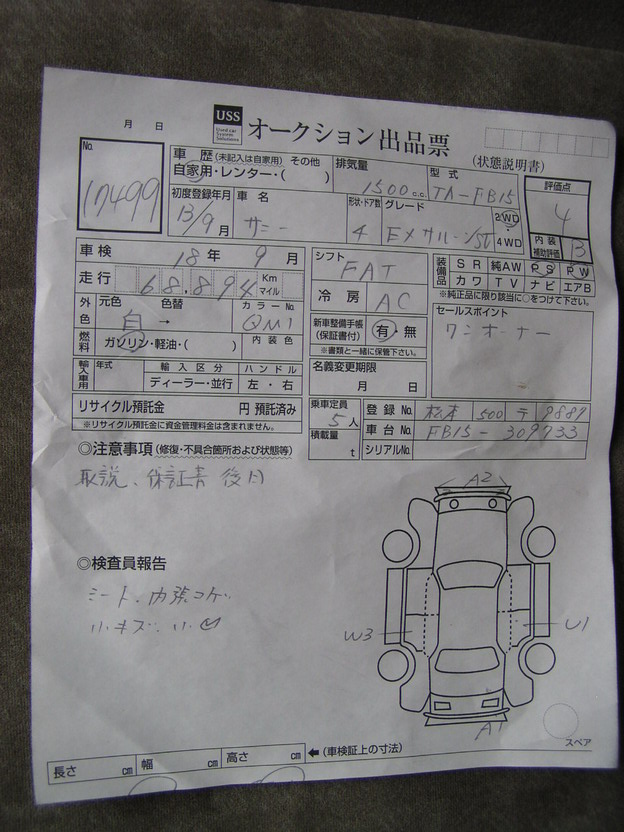 月 日
USS
Used car System Solutions
オークション出品票
(状態説明書)
No. 17499
車歴 (未記入は自家用) その他
自家用・レンター・( )
排気量 1500 c.c.
型式 TA-FB15
評価点 4
初度登録年月 13/9月
車名 サニー
形状・ドア数 4
グレード EXサルーン
2WD・4WD
内装補助評価 B
車検 18年 9月
シフト FAT
装備品 SR 純AW PS PW
カワ TV ナビ エアB
※純正品に限り該当に○をつけて下さい。
走行 68.894 Km マイル
冷房 AC
外色 元色 色替 カラーNo.
白 → QM1
新車整備手帳(保証書付) 有・無
※書類と一緒に保管下さい。
セールスポイント
ワンオーナー
燃料 ガソリン・軽油・( ) 内装色
輸入車用 年式 輸入区分 ハンドル
ディーラー・並行 左・右
名義変更期限
月 日
リサイクル預託金 円 預託済み
※リサイクル預託金に資金管理料金は含まれません。
乗車定員 5人
積載量 t
登録No. 松本 500 テ 9887
車台No. FB15-309733
シリアルNo.
◎注意事項 (修復・不具合箇所および状態等)
取説、保証書 後日
◎検査員報告
シート、内張コゲ
小キズ、小
A2
W3
U1
A1
スペア
長さ cm 幅 cm 高さ cm ←(車検証上の寸法)